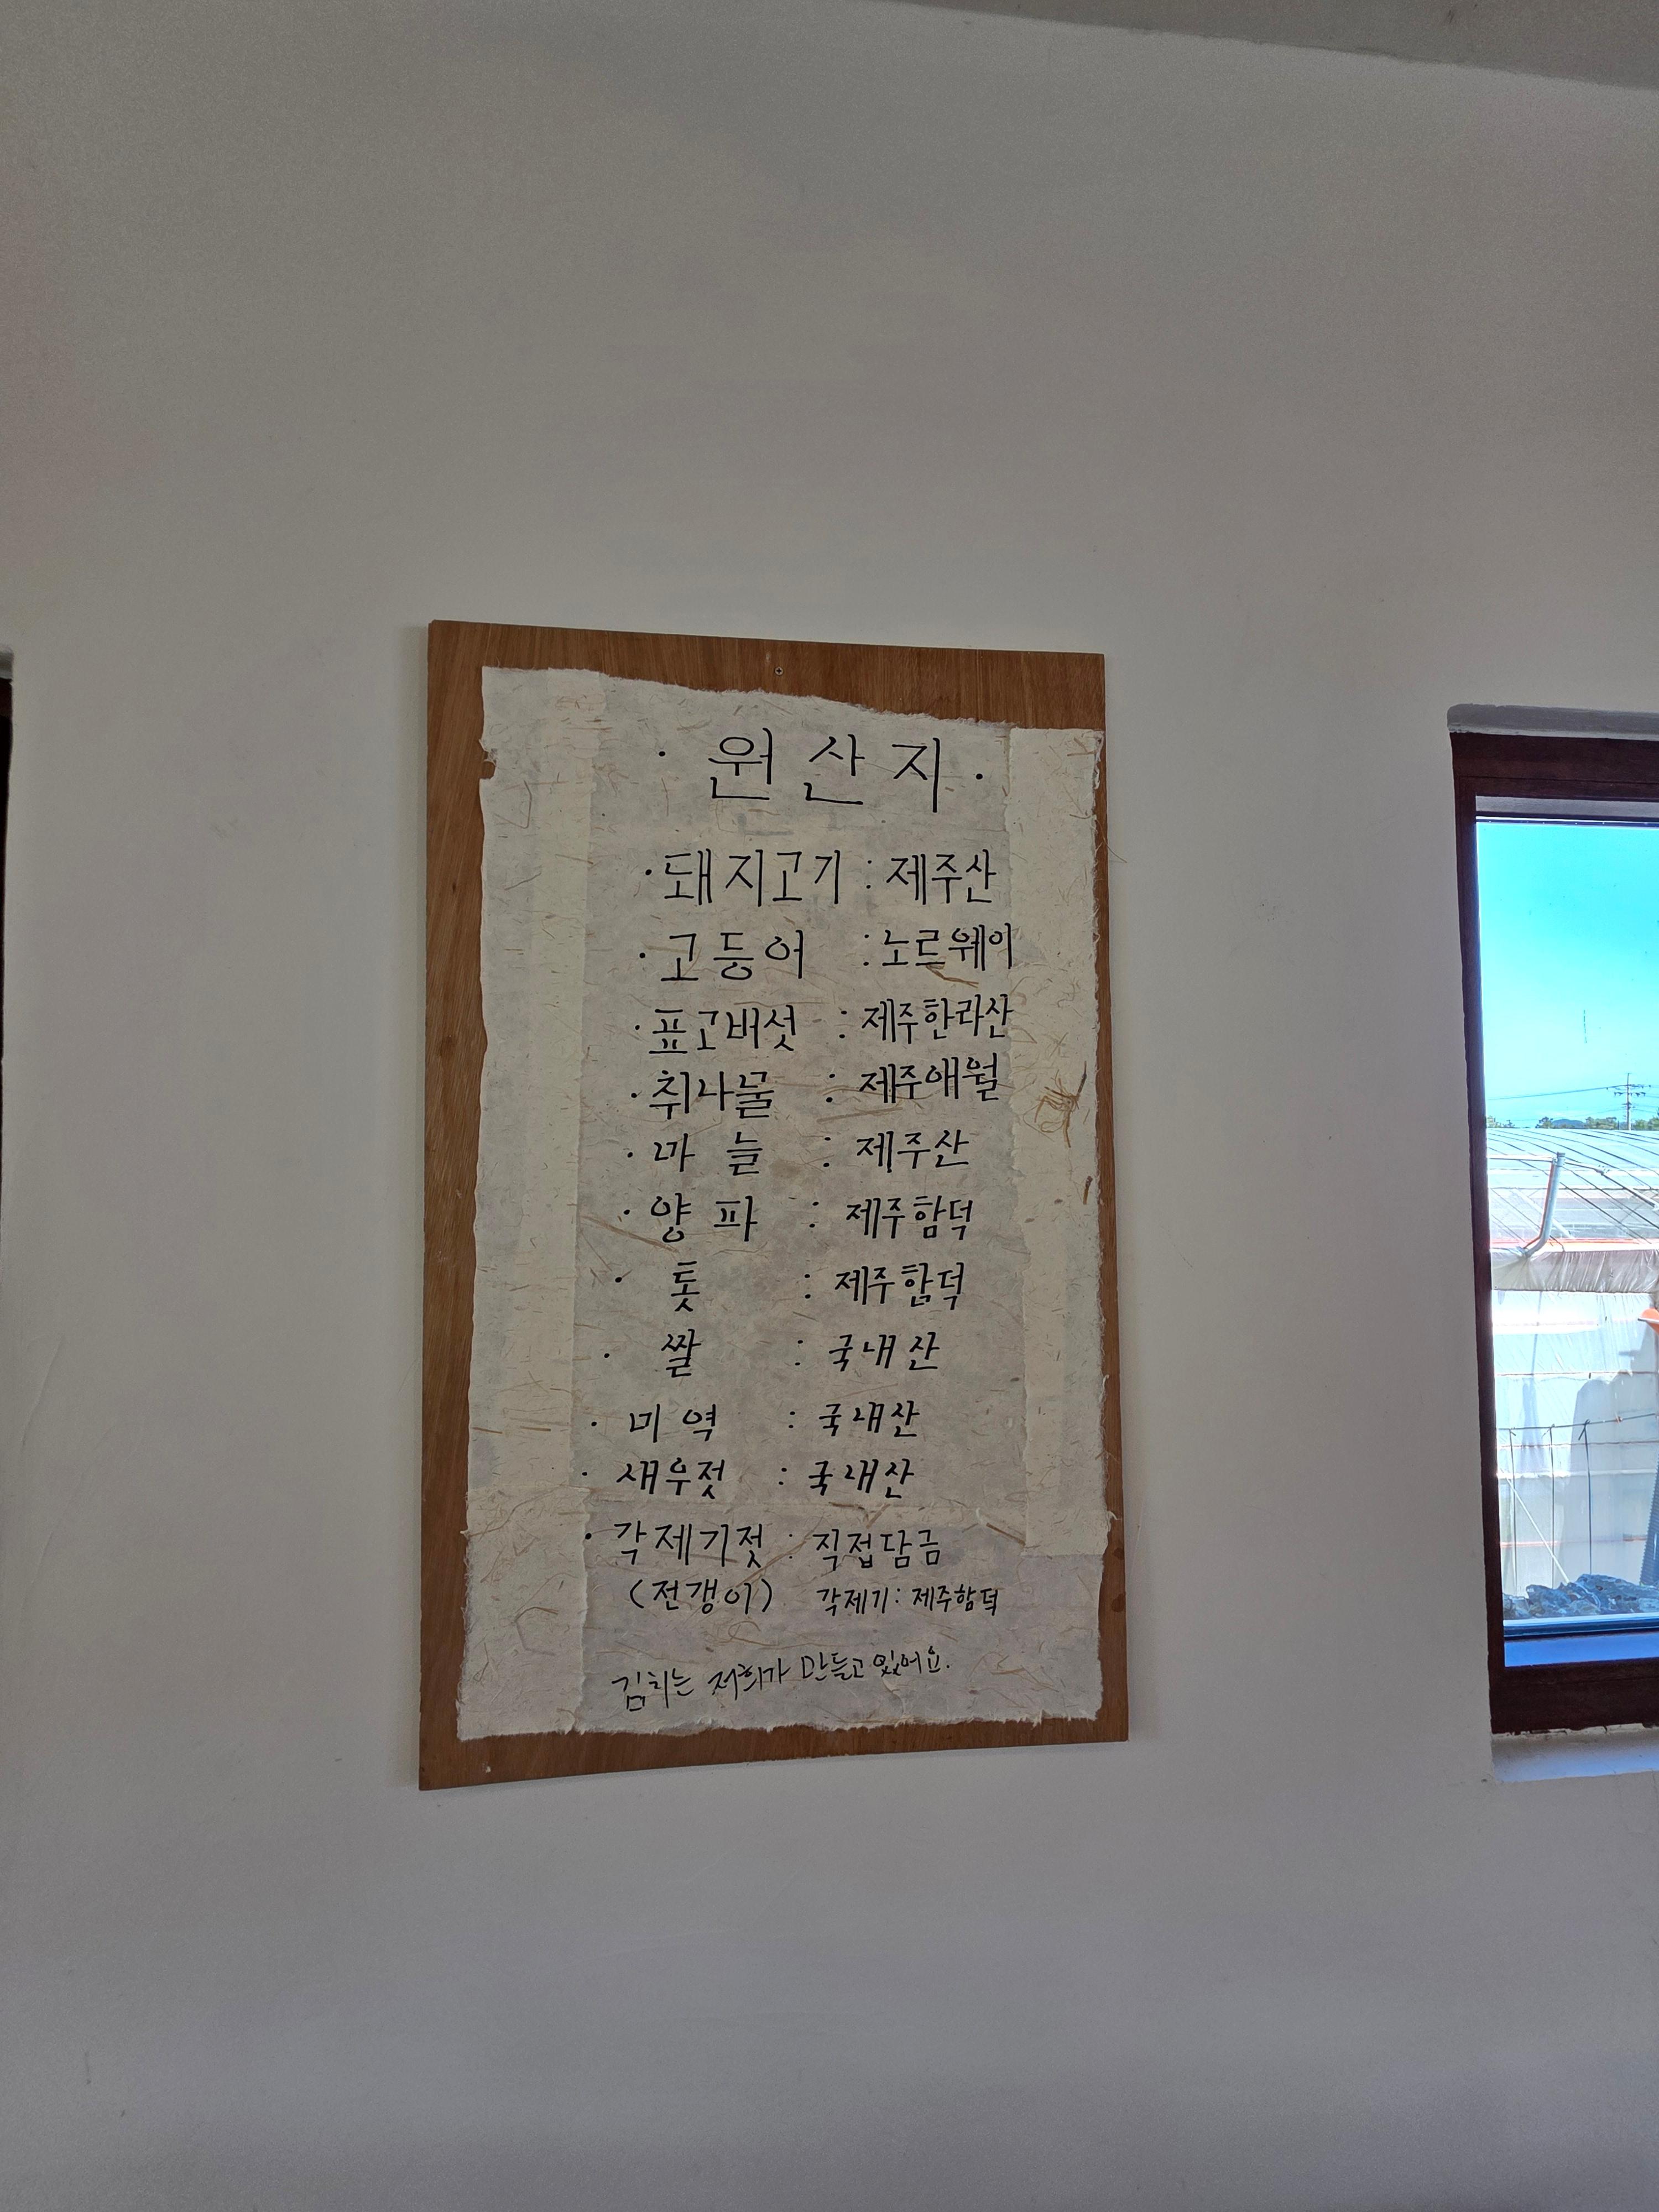 · 원산지 ·
· 돼지고기 : 제주산
· 고등어 : 노르웨이
· 표고버섯 : 제주한라산
· 취나물 : 제주애월
· 마늘 : 제주산
· 양파 : 제주함덕
· 톳 : 제주함덕
· 쌀 : 국내산
· 미역 : 국내산
· 새우젓 : 국내산
· 각제기젓 : 직접담금
(전갱이) 각제기 : 제주함덕
김치는 저희가 만들고 있어요.